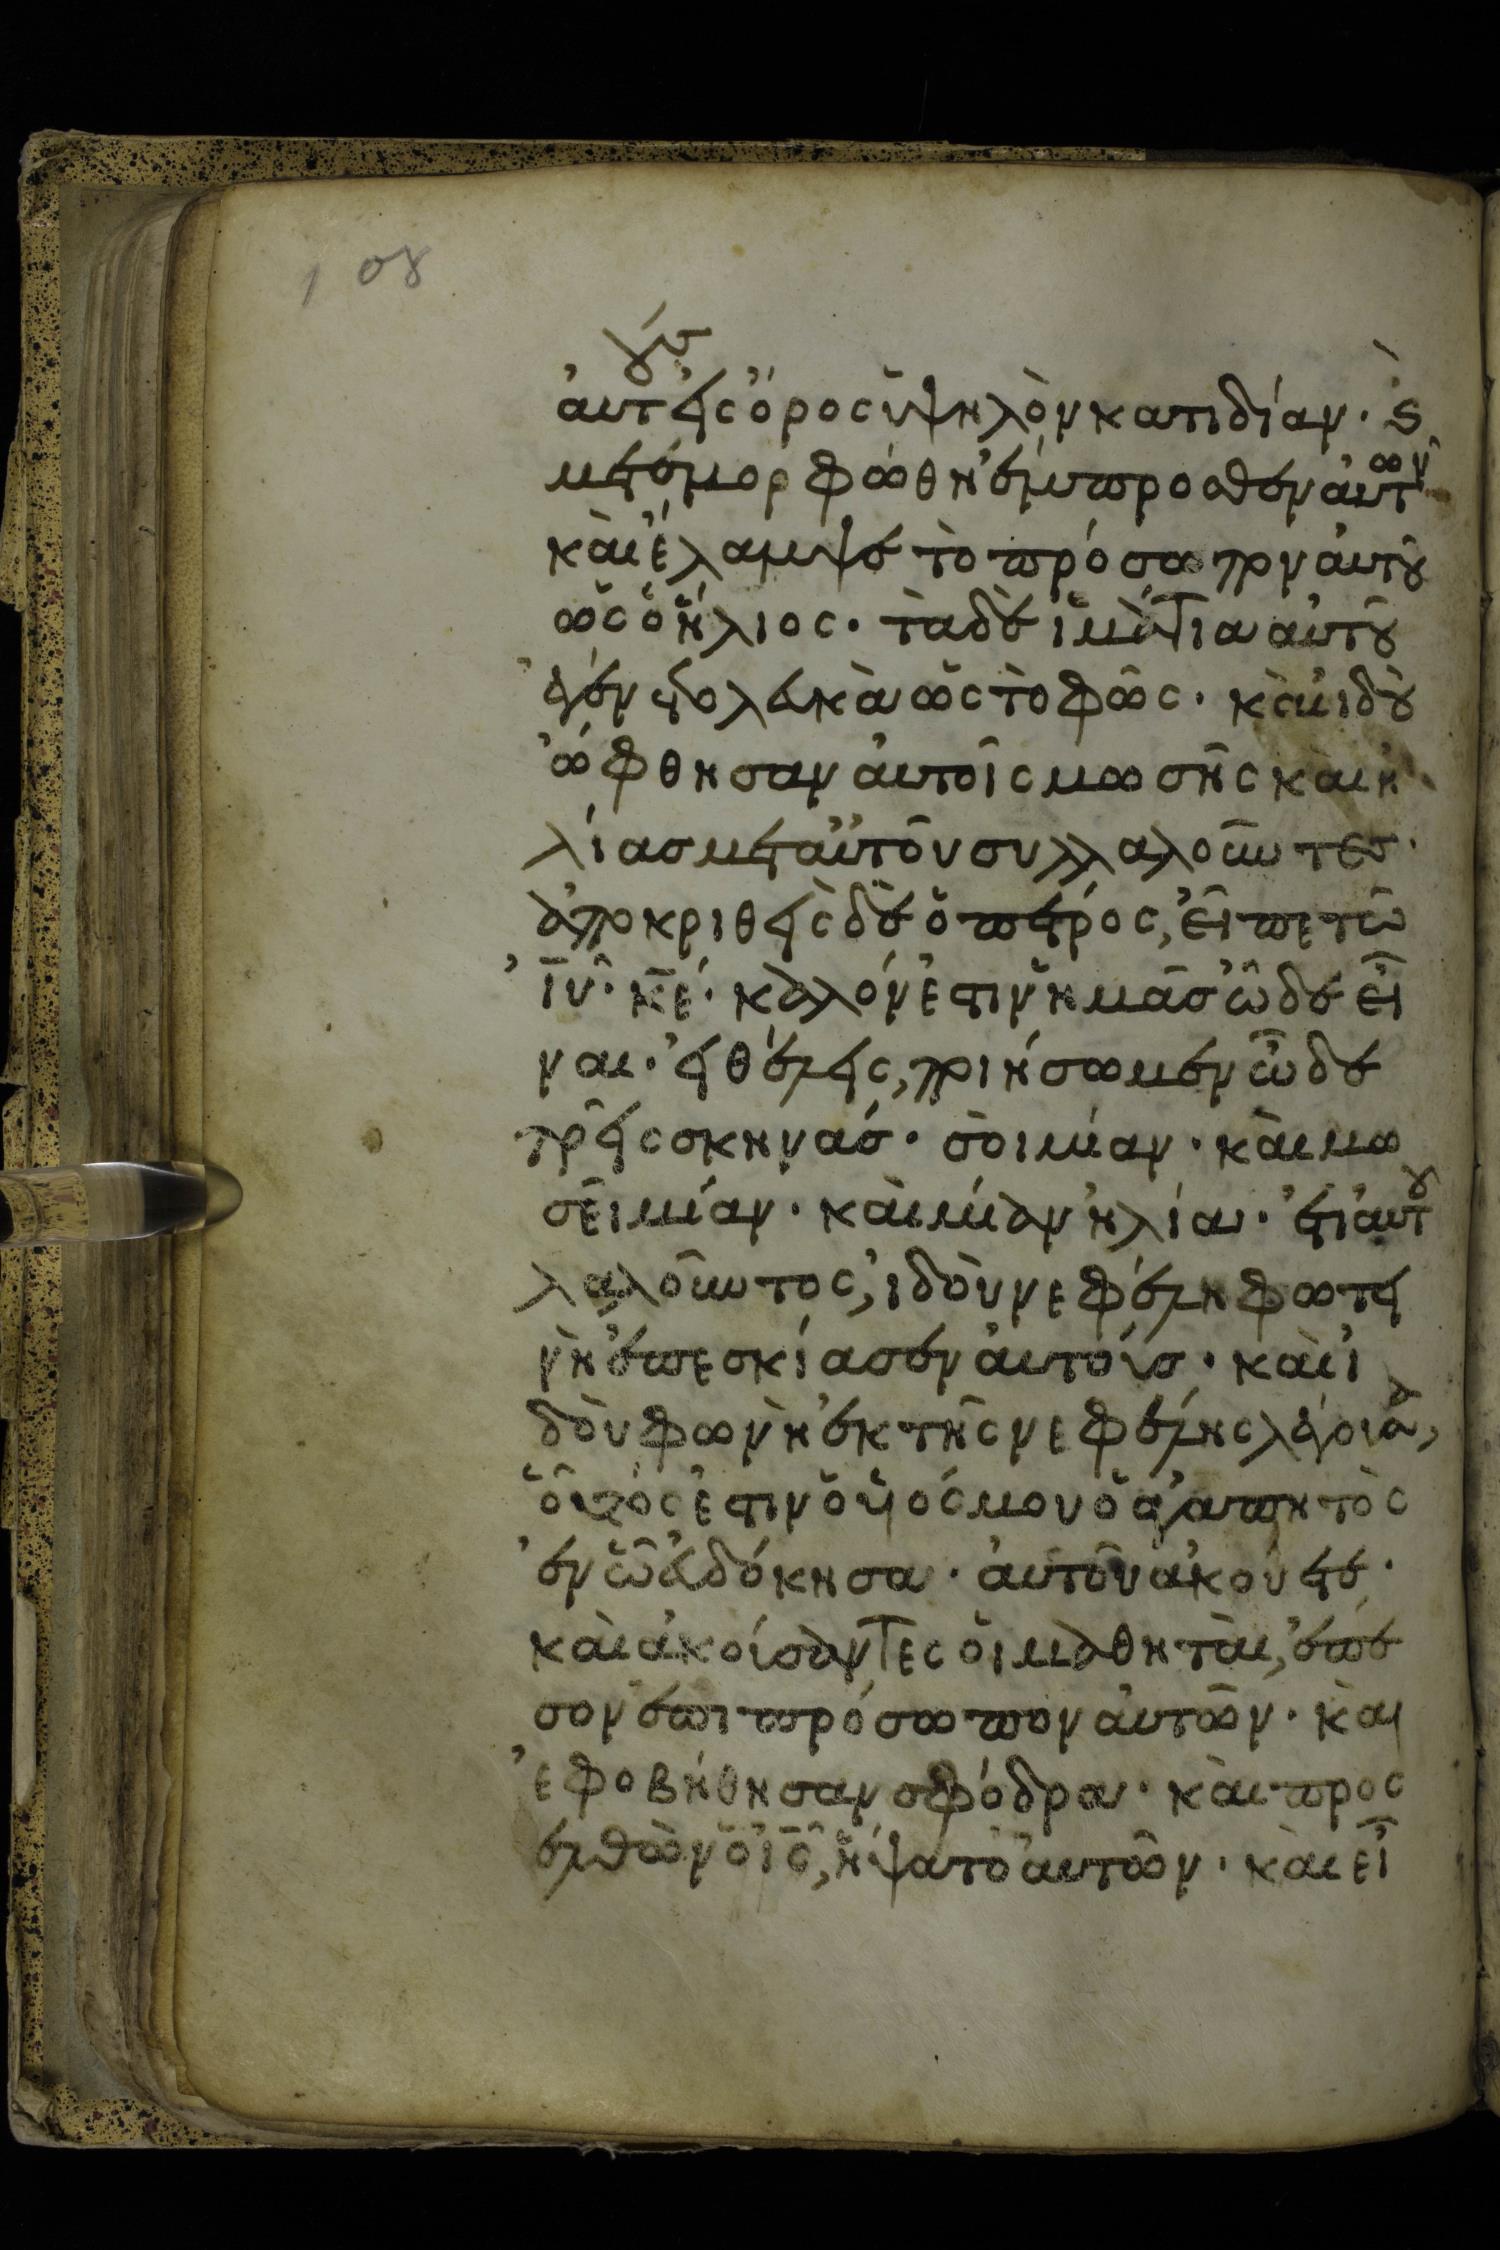 108
ἀυτοὺσ εἰς ὄρος ὑψηλὸν κατιδίαν· κὶ
μετεμορφώθη ἔμπροσθεν ἀυτῶν
κὰι ἔλαμψε τὸ πρόσωπον ἀυτοῦ
ὡς ὁ ἥλιος· τὰ δὲ ἱμάτια αὐτοῦ
ἐγένετο λευκὰ ὡς τὸ φῶς· κὰι ἰδοὺ
ὤφθησαν ἀυτοῖς μωσῆς κὰι ἠ
λίασ μετ ἀυτοῦ συλλαλοῦντεσ·
ἀποκριθεὶς δὲ ὁ πέτρος, εἶπε τῶ
ἰῦ· κ̅ε̅· καλόν ἐστιν ἡμᾶσ ὧδε εἶ
ναι· εἰ θέλεις, ποιήσωμεν ὧδε
τρεῖς σκηνάσ· σὸι μίαν· κὰι μω
σεῖ μίαν· κὰι μίαν ἠλίαι· ἔτι ἀυτοῦ
λαλοῦντος, ἰδοὺ νεφέλη φωτει
νὴ ἐπεσκίασεν ἀυτοίσ· κὰι ἰ
δοὺ φωνὴ ἐκ τῆς νεφέλης λέγουσα,
οὗτός ἐστιν ὁ υἱός μου ὁ ἀγαπητὸς
ἐν ὧ ἐυδόκησα· ἀυτοῦ ἀκούετε·
κὰι ἀκούσαντες ὁι μαθητὰι, ἔπε
σον ἐπι πρόσωπον ἀυτῶν· κὰι
ἐφοβήθησαν σφόδρα· κὰι προς
ελθὼν ὁ ἰ̅ς̅, ἥψατο ἀυτῶν· κὰι εἶ